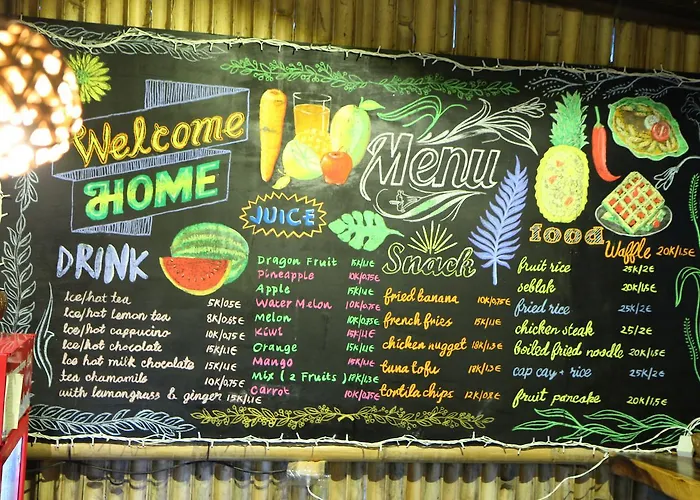 Welcome
HOME
Menu
DRINK
Ice/hot tea 5K/0.5€
Ice/hot lemon tea 8K/0.65€
Ice/hot cappucino 10K/0.75€
Ice/hot chocolate 15K/1.1€
Ice hot milk chocolate 15K/1.1€
tea chamomile 10K/0.75€
with lemongrass & ginger 15K/1.1€
JUICE
Dragon Fruit 15K/1.1€
Pineapple 10K/0.75€
Apple 15K/1.1€
Water Melon 10K/0.75€
Melon 10K/0.75€
Kiwi 15K/1.1€
Orange 15K/1.1€
Mango 15K/1.1€
Mix (2 Fruits) 18K/1.3€
Carrot 10K/0.75€
Snack
fried banana 10K/0.75€
french fries 15K/1.1€
chicken nugget 18K/1.3€
tuna tofu 18K/1.3€
tortila chips 12K/0.8€
food
Waffle 20K/1.5€
fruit rice 25K/2€
seblak 20K/1.5€
fried rice 25K/2€
chicken steak 25/2€
boiled fried noodle 20K/1.5€
cap cay + rice 25K/2€
fruit pancake 20K/1.5€